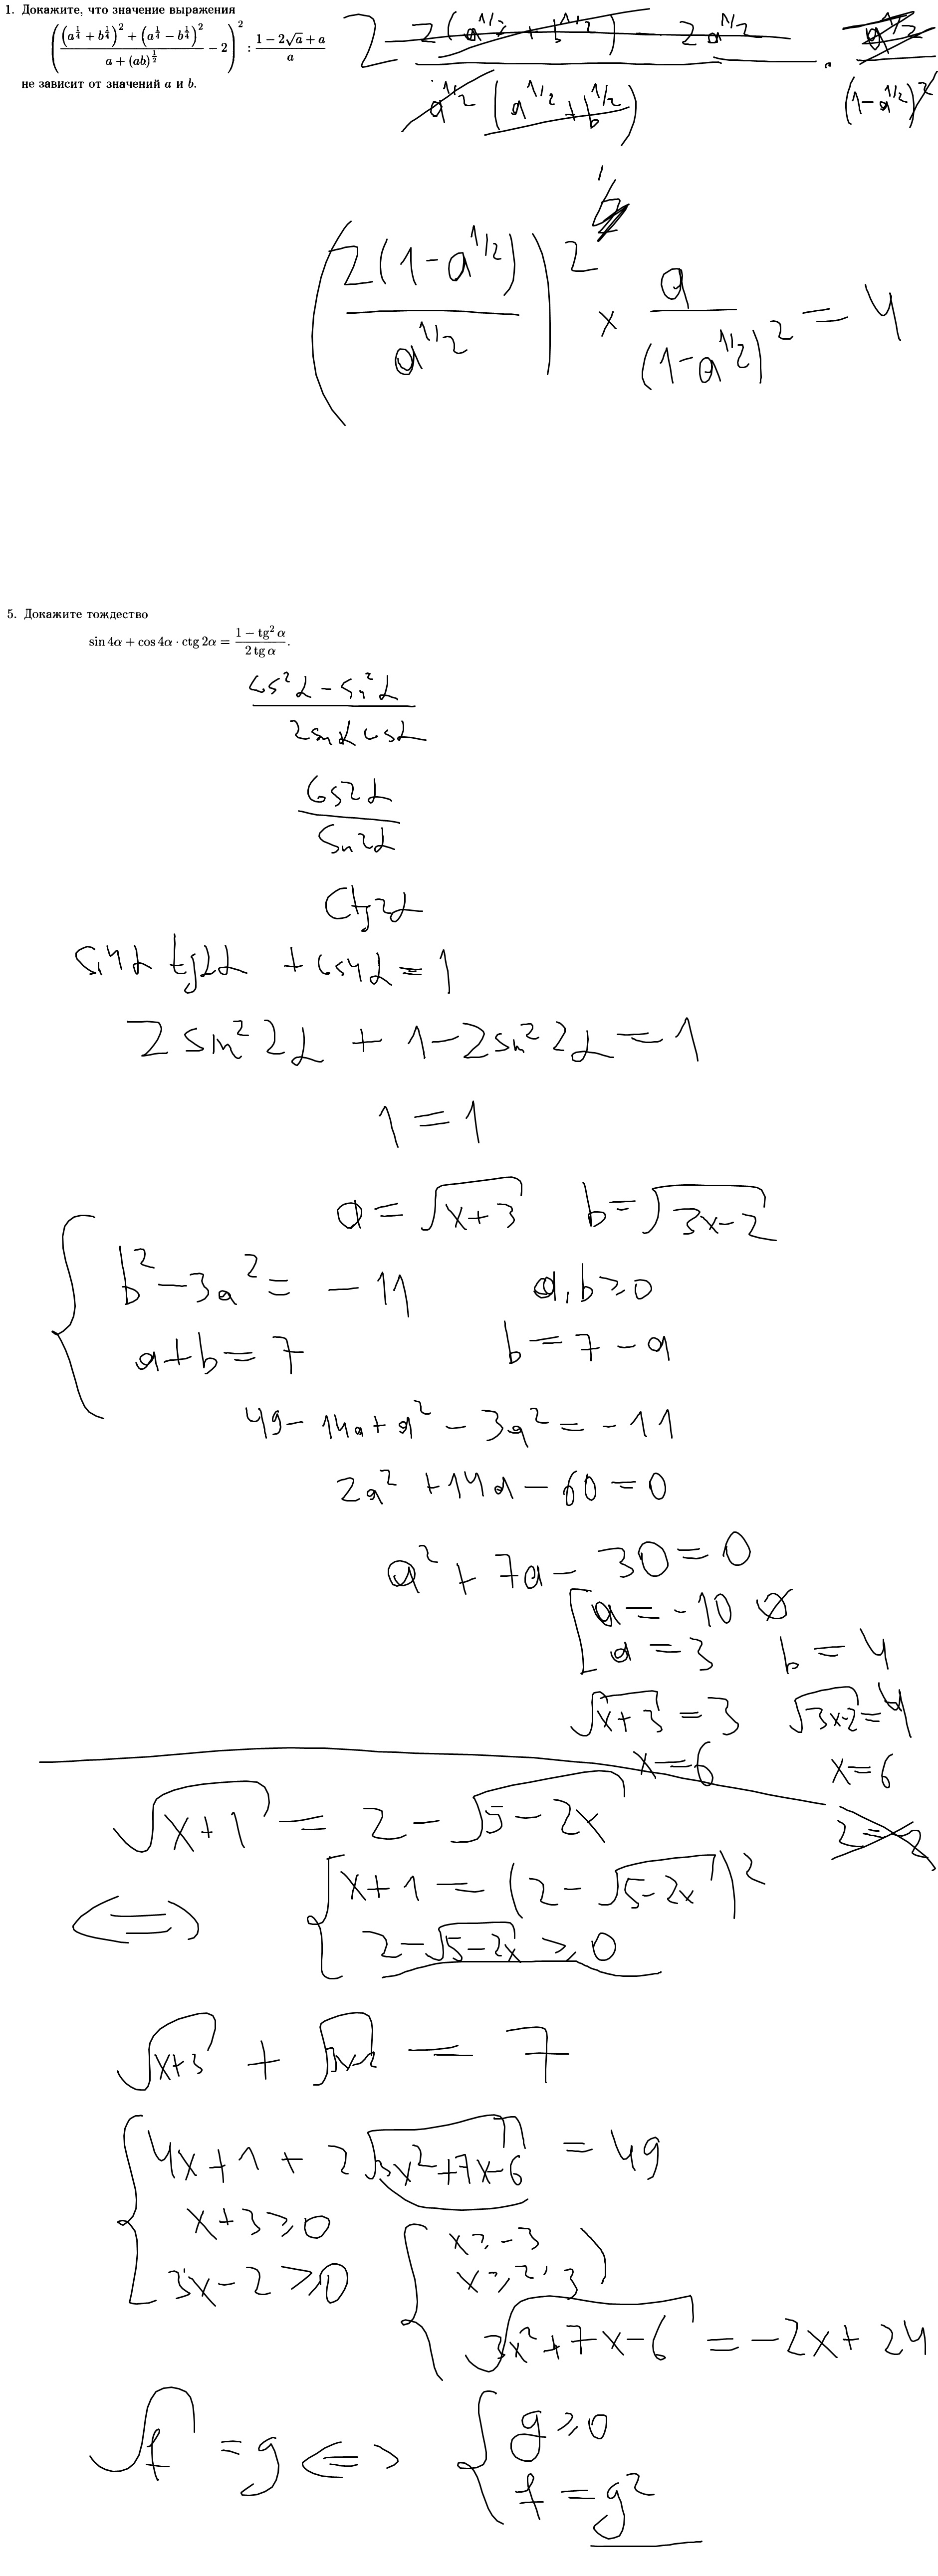 1. Докажите, что значение выражения
(((a^{1/4} + b^{1/4})^2 + (a^{1/4} − b^{1/4})^2)/(a + (ab)^{1/2}) − 2)^2 : (1 − 2√a + a)/a
не зависит от значений a и b.
2(a^{1/2} + b^{1/2}) − 2a^{1/2}
a^{1/2} (a^{1/2} + b^{1/2})
(1−a^{1/2})^2
(2(1−a^{1/2})/a^{1/2})^2 × a/(1−a^{1/2})^2 = 4
5. Докажите тождество
sin 4α + cos 4α · ctg 2α = (1 − tg² α)/(2 tg α).
(cos²α − sin²α)/(2sinα cosα)
cos2α/sin2α
ctg2α
sin4α tg2α + cos4α = 1
2 sin² 2α + 1 − 2sin² 2α = 1
1 = 1
a = √(x+3) b = √(3x−2)
b² − 3a² = −11 a,b ≥ 0
a+b = 7 b = 7 − a
49 − 14a + a² − 3a² = −11
2a² + 14a − 60 = 0
a² + 7a − 30 = 0
a = −10 ∅
a = 3 b = 4
√(x+3) = 3 √(3x−2) = 4
x = 6 x = 6
2 = 2
√(x+1) = 2 − √(5−2x)
⟺ x+1 = (2 − √(5−2x))²
2 − √(5−2x) ≥ 0
√(x+3) + √(3x−2) = 7
4x+1 + 2√(3x²+7x−6) = 49
x+3 ≥ 0
3x−2 ≥ 0
x ≥ −3
x ≥ 2/3
√(3x²+7x−6) = −2x + 24
√f = g ⟺ g ≥ 0
f = g²